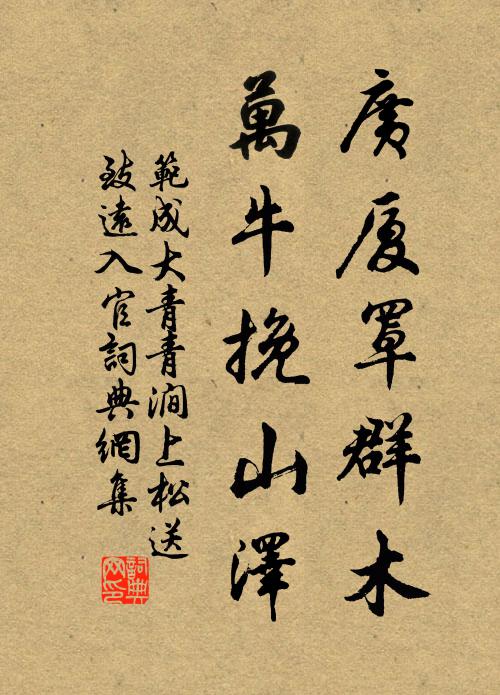 廣厦罩群木
萬牛挽山澤
範成大青青澗上松送
致遠入官詞典網集
詞典
网印